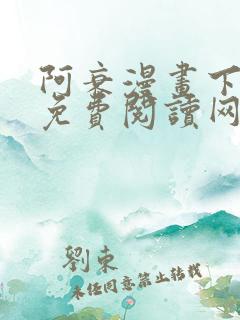 阿衰漫畫下
免費閱讀网
劉東
未经同意禁止转载